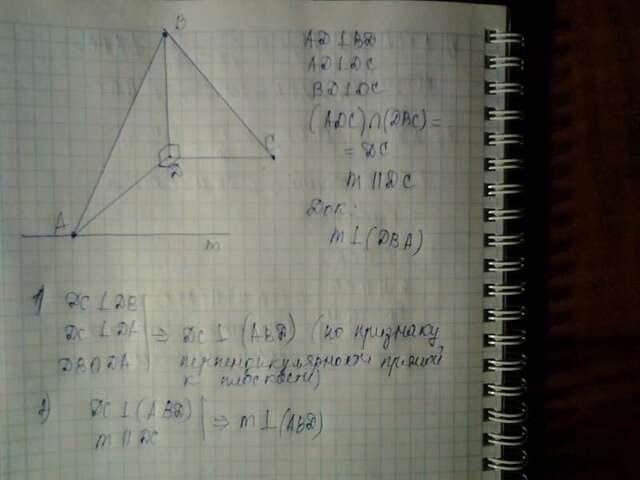 B
C
D
A
m
AD⊥BD
AD⊥DC
BD⊥DC
(ADC)∩(DBC)=
=DC
m∥DC
Док:
m⊥(DBA)
1) DC⊥DB
DC⊥DA ⇒ DC⊥(ABD) (по признаку
DB∩DA перпендикулярности прямой
к плоскости)
2) DC⊥(ABD)
m∥DC ⇒ m⊥(ABD)